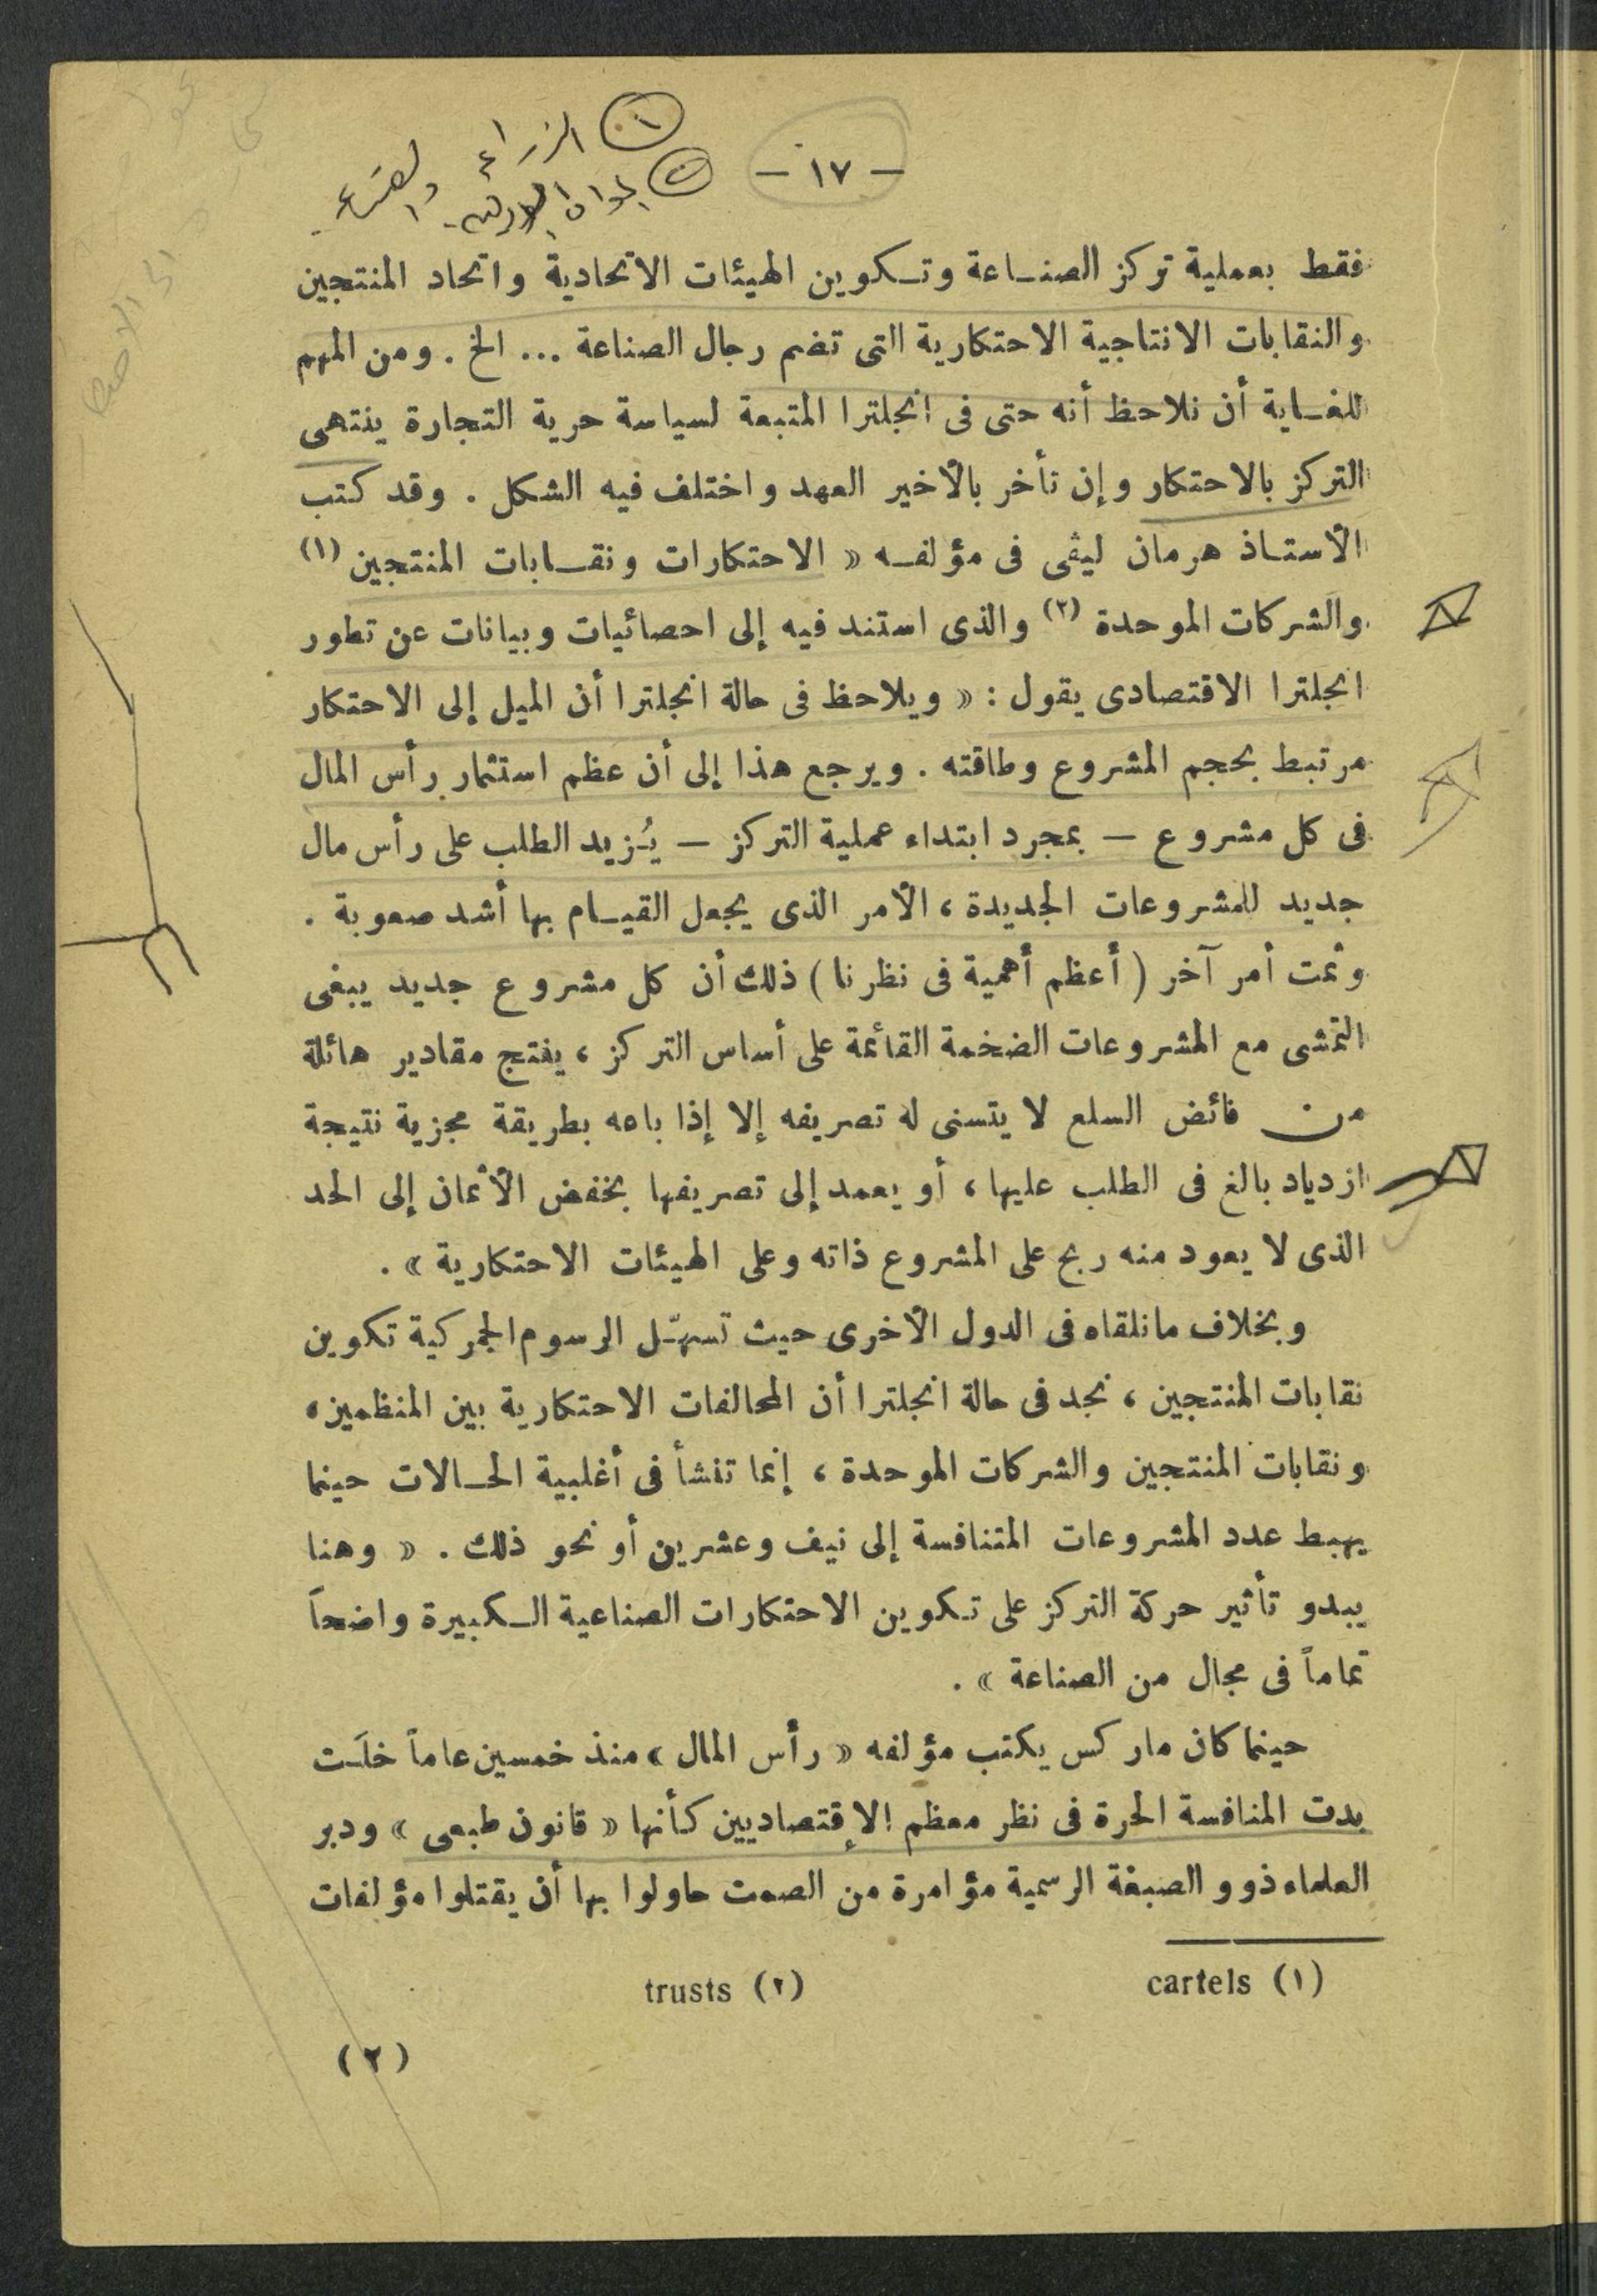 — ١٧ —
فقط بعملية تركز الصناعة وتكوين الهيئات الاتحادية واتحاد المنتجين
والنقابات الانتاجية الاحتكارية التى تضم رجال الصناعة ... الخ . ومن المهم
للغاية أن نلاحظ أنه حتى فى انجلترا المتبعة لسياسة حرية التجارة ينتهى
التركز بالاحتكار وإن تأخر بالأخير العهد واختلف فيه الشكل . وقد كتب
الأستاذ هرمان ليڤى فى مؤلفه « الاحتكارات ونقابات المنتجين (١)
والشركات الموحدة (٢) والذى استند فيه إلى احصائيات وبيانات عن تطور
انجلترا الاقتصادى يقول : « ويلاحظ فى حالة انجلترا أن الميل إلى الاحتكار
مرتبط بحجم المشروع وطاقته . ويرجع هذا إلى أن عظم استثمار رأس المال
فى كل مشروع — بمجرد ابتداء عملية التركز — يُزيد الطلب على رأس مال
جديد للمشروعات الجديدة ، الأمر الذى يجعل القيام بها أشد صعوبة .
وثمت أمر آخر ( أعظم أهمية فى نظرنا ) ذلك أن كل مشروع جديد يبغى
التمشى مع المشروعات الضخمة القائمة على أساس التركز ، ينتج مقادير هائلة
من فائض السلع لا يتسنى له تصريفه إلا إذا باعه بطريقة مجزية نتيجة
ازدياد بالغ فى الطلب عليها ، أو يعمد إلى تصريفها بخفض الأثمان إلى الحد
الذى لا يعود منه ربح على المشروع ذاته وعلى الهيئات الاحتكارية » .
وبخلاف مانلقاه فى الدول الأخرى حيث تسهّل الرسوم الجمركية تكوين
نقابات المنتجين ، نجد فى حالة انجلترا أن المحالفات الاحتكارية بين المنظمين ،
ونقابات المنتجين والشركات الموحدة ، إنما تنشأ فى أغلبية الحالات حينما
يهبط عدد المشروعات المتنافسة إلى نيف وعشرين أو نحو ذلك . « وهنا
يبدو تأثير حركة التركز على تكوين الاحتكارات الصناعية الكبيرة واضحاً
تماماً فى مجال من الصناعة » .
حينما كان ماركس يكتب مؤلفه « رأس المال » منذ خمسين عاماً خلَت
بدت المنافسة الحرة فى نظر معظم الإقتصاديين كأنها « قانون طبعى » ودبر
العلماء ذوو الصبغة الرسمية مؤامرة من الصمت حاولوا بها أن يقتلوا مؤلفات
(١) cartels (٢) trusts
(٢)